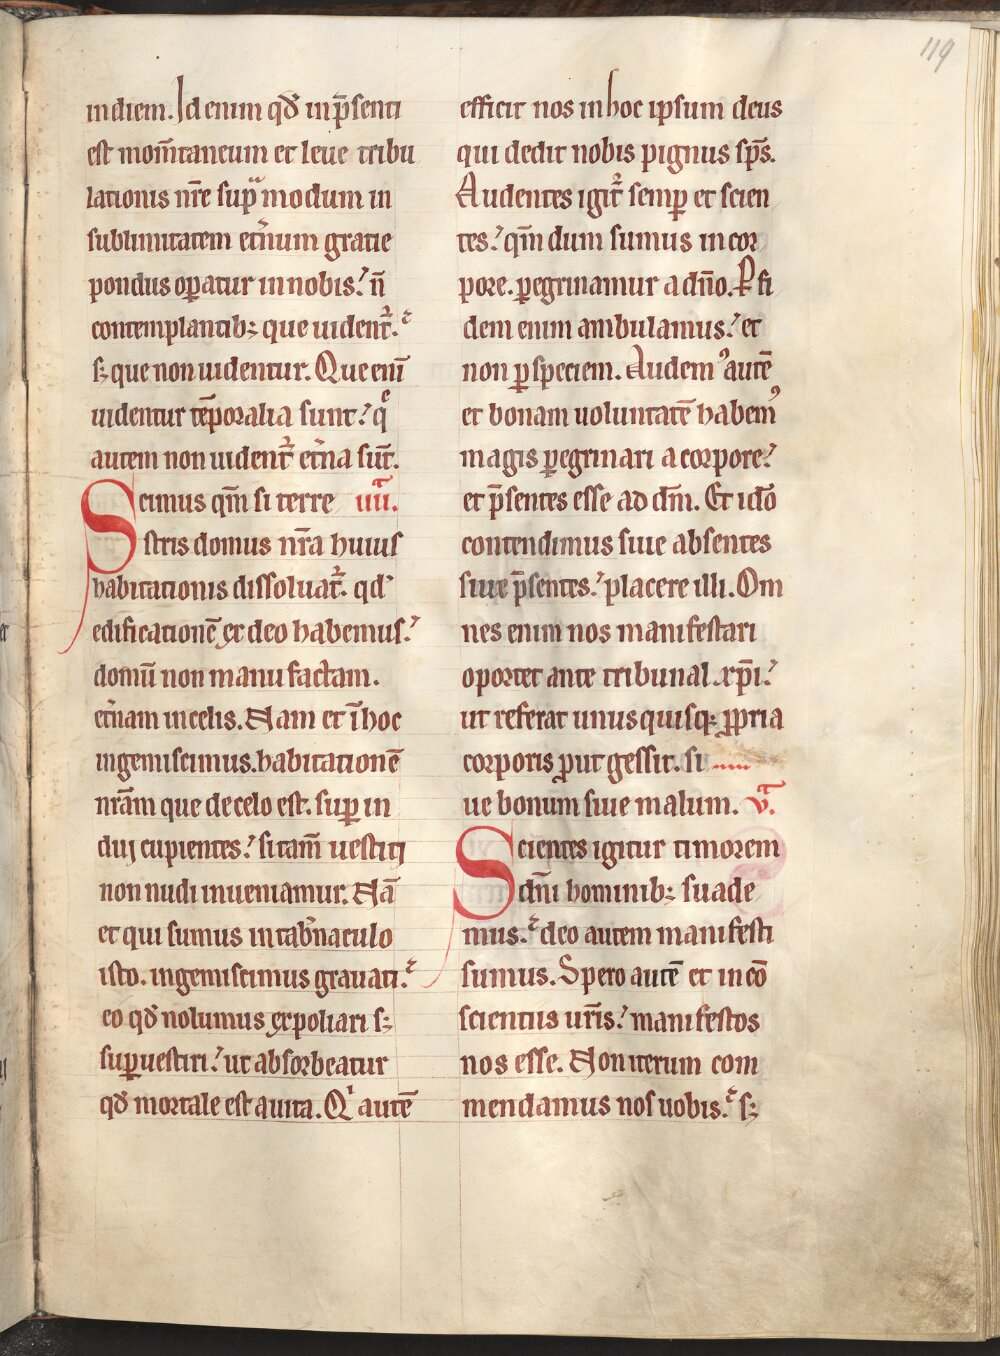 119
in diem. Id enim qđ in p̄senti
est mom̄taneum et leue tribu
lationis nr̄e sup̄ modum in
sublimitatem etn̄um gratie
pondus oꝑatur in nobis: n̄
contemplantib; que uident᷑.
s; que non uidentur. Que eni̅
uidentur te̅poralia sunt: qͤ
autem non uident᷑ etn̄a su̅t.
Scimus qm̅ si terre iiii.
stris domus nr̄a huius
habitationis dissoluat᷑. qd'
edificatione̅ ex deo habemus:
domu̅ non manu factam.
etn̄am in celis. Nam et i̅ hoc
ingemiscimus. habitatione̅
nr̄am que de celo est. suꝑ in
dui cupientes: si tam̅ uestiti
non nudi inueniamur. Na̅
et qui sumus in tabn̄aculo
isto. ingemiscimus grauati:
eo qđ nolumus expoliari s;
suꝑuestiri: ut absorbeatur
qđ mortale est a uita. Qͥ aute̅
efficit nos in hoc ipsum deus
qui dedit nobis pignus sp̅s.
Audentes igit᷑ semꝑ et scien
tes: qm̅ dum sumus in cor
pore. ꝑegrinamur a dn̅o. Ꝑ fi
dem enim ambulamus: et
non ꝑ speciem. Audemꝰ aute̅
et bonam uoluntate̅ habemꝰ
magis ꝑegrinari a corpore:
et p̄sentes esse ad dm̅. Et ido̅
contendimus siue absentes
siue p̄sentes: placere illi. Om
nes enim nos manifestari
oportet ante tribunal xp̅i:
ut referat unus quisq; ꝓpria
corporis ꝓut gessit. si
ue bonum siue malum. v.
Scientes igitur timorem
dn̅i hominib; suade
mus. deo autem manifesti
sumus. Spero aute̅ et in co̅
scientiis ur̄is: manifestos
nos esse. Non iterum com
mendamus nos uobis. s;